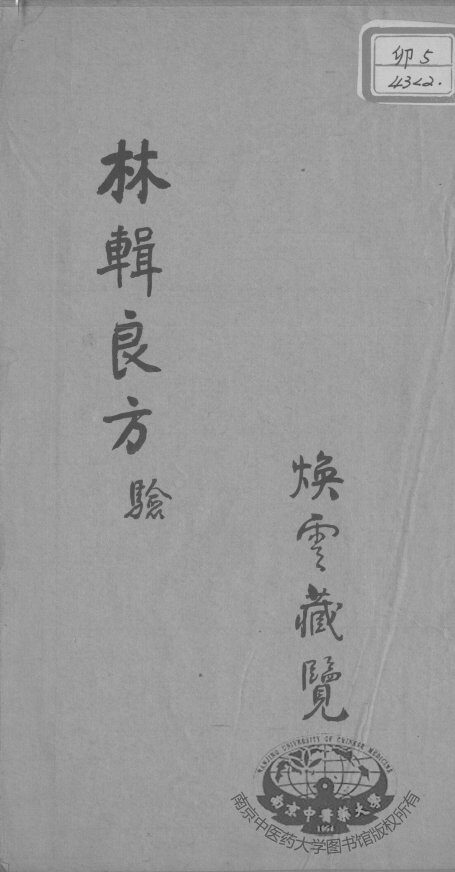 卯5
4322.
煥雲藏覽
林輯良方驗
NANJING UNIVERSITY OF CHINESE MEDICINE
南京中醫藥大學
1954
南京中医药大学图书馆版权所有